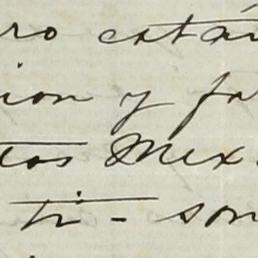 ro están
ion y fa
tos Mex
ti- son